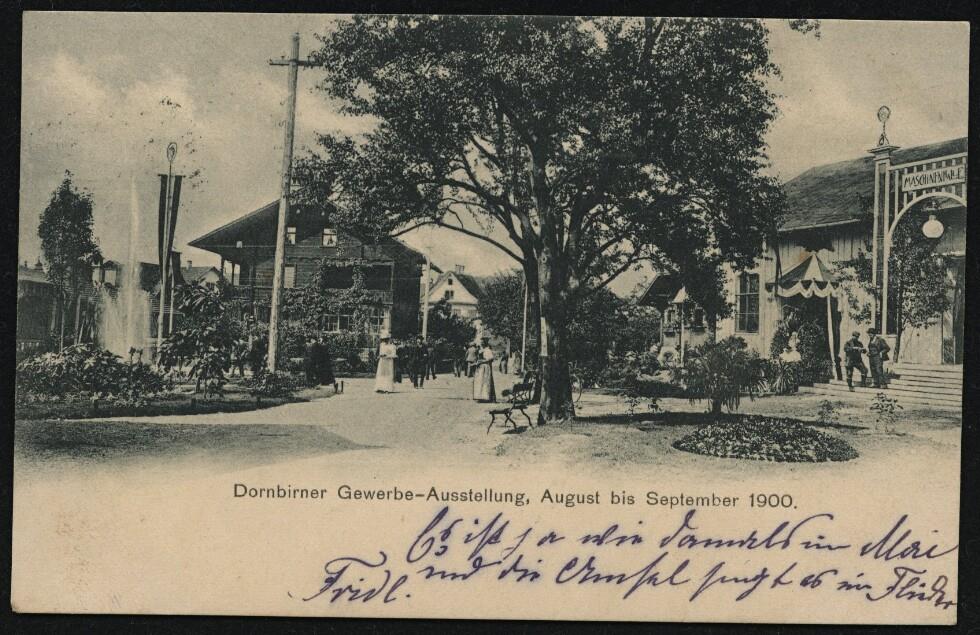 MASCHINENHALLE
Dornbirner Gewerbe-Ausstellung, August bis September 1900.
Es ist ja wie damals im Mai
und die Amsel singt es im Flieder
Fridl.